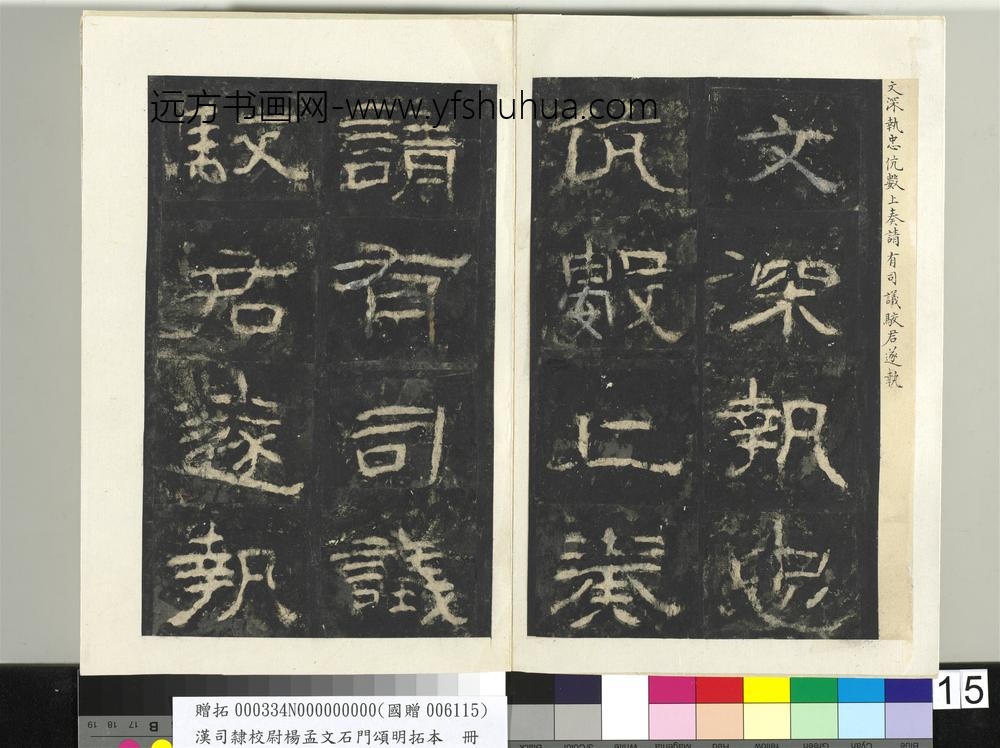 远方书画网-www.yfshuhua.com
文深執忠伉數上奏請有司議駮君遂執
文深執忠
伉數上奏
請有司議
駮君遂執
贈拓 000334N000000000(國贈 006115)
漢司隸校尉楊孟文石門頌明拓本 冊
15
19 18 17 B
Black 3/Color White Magenta Red Yellow Green Cyan Blue